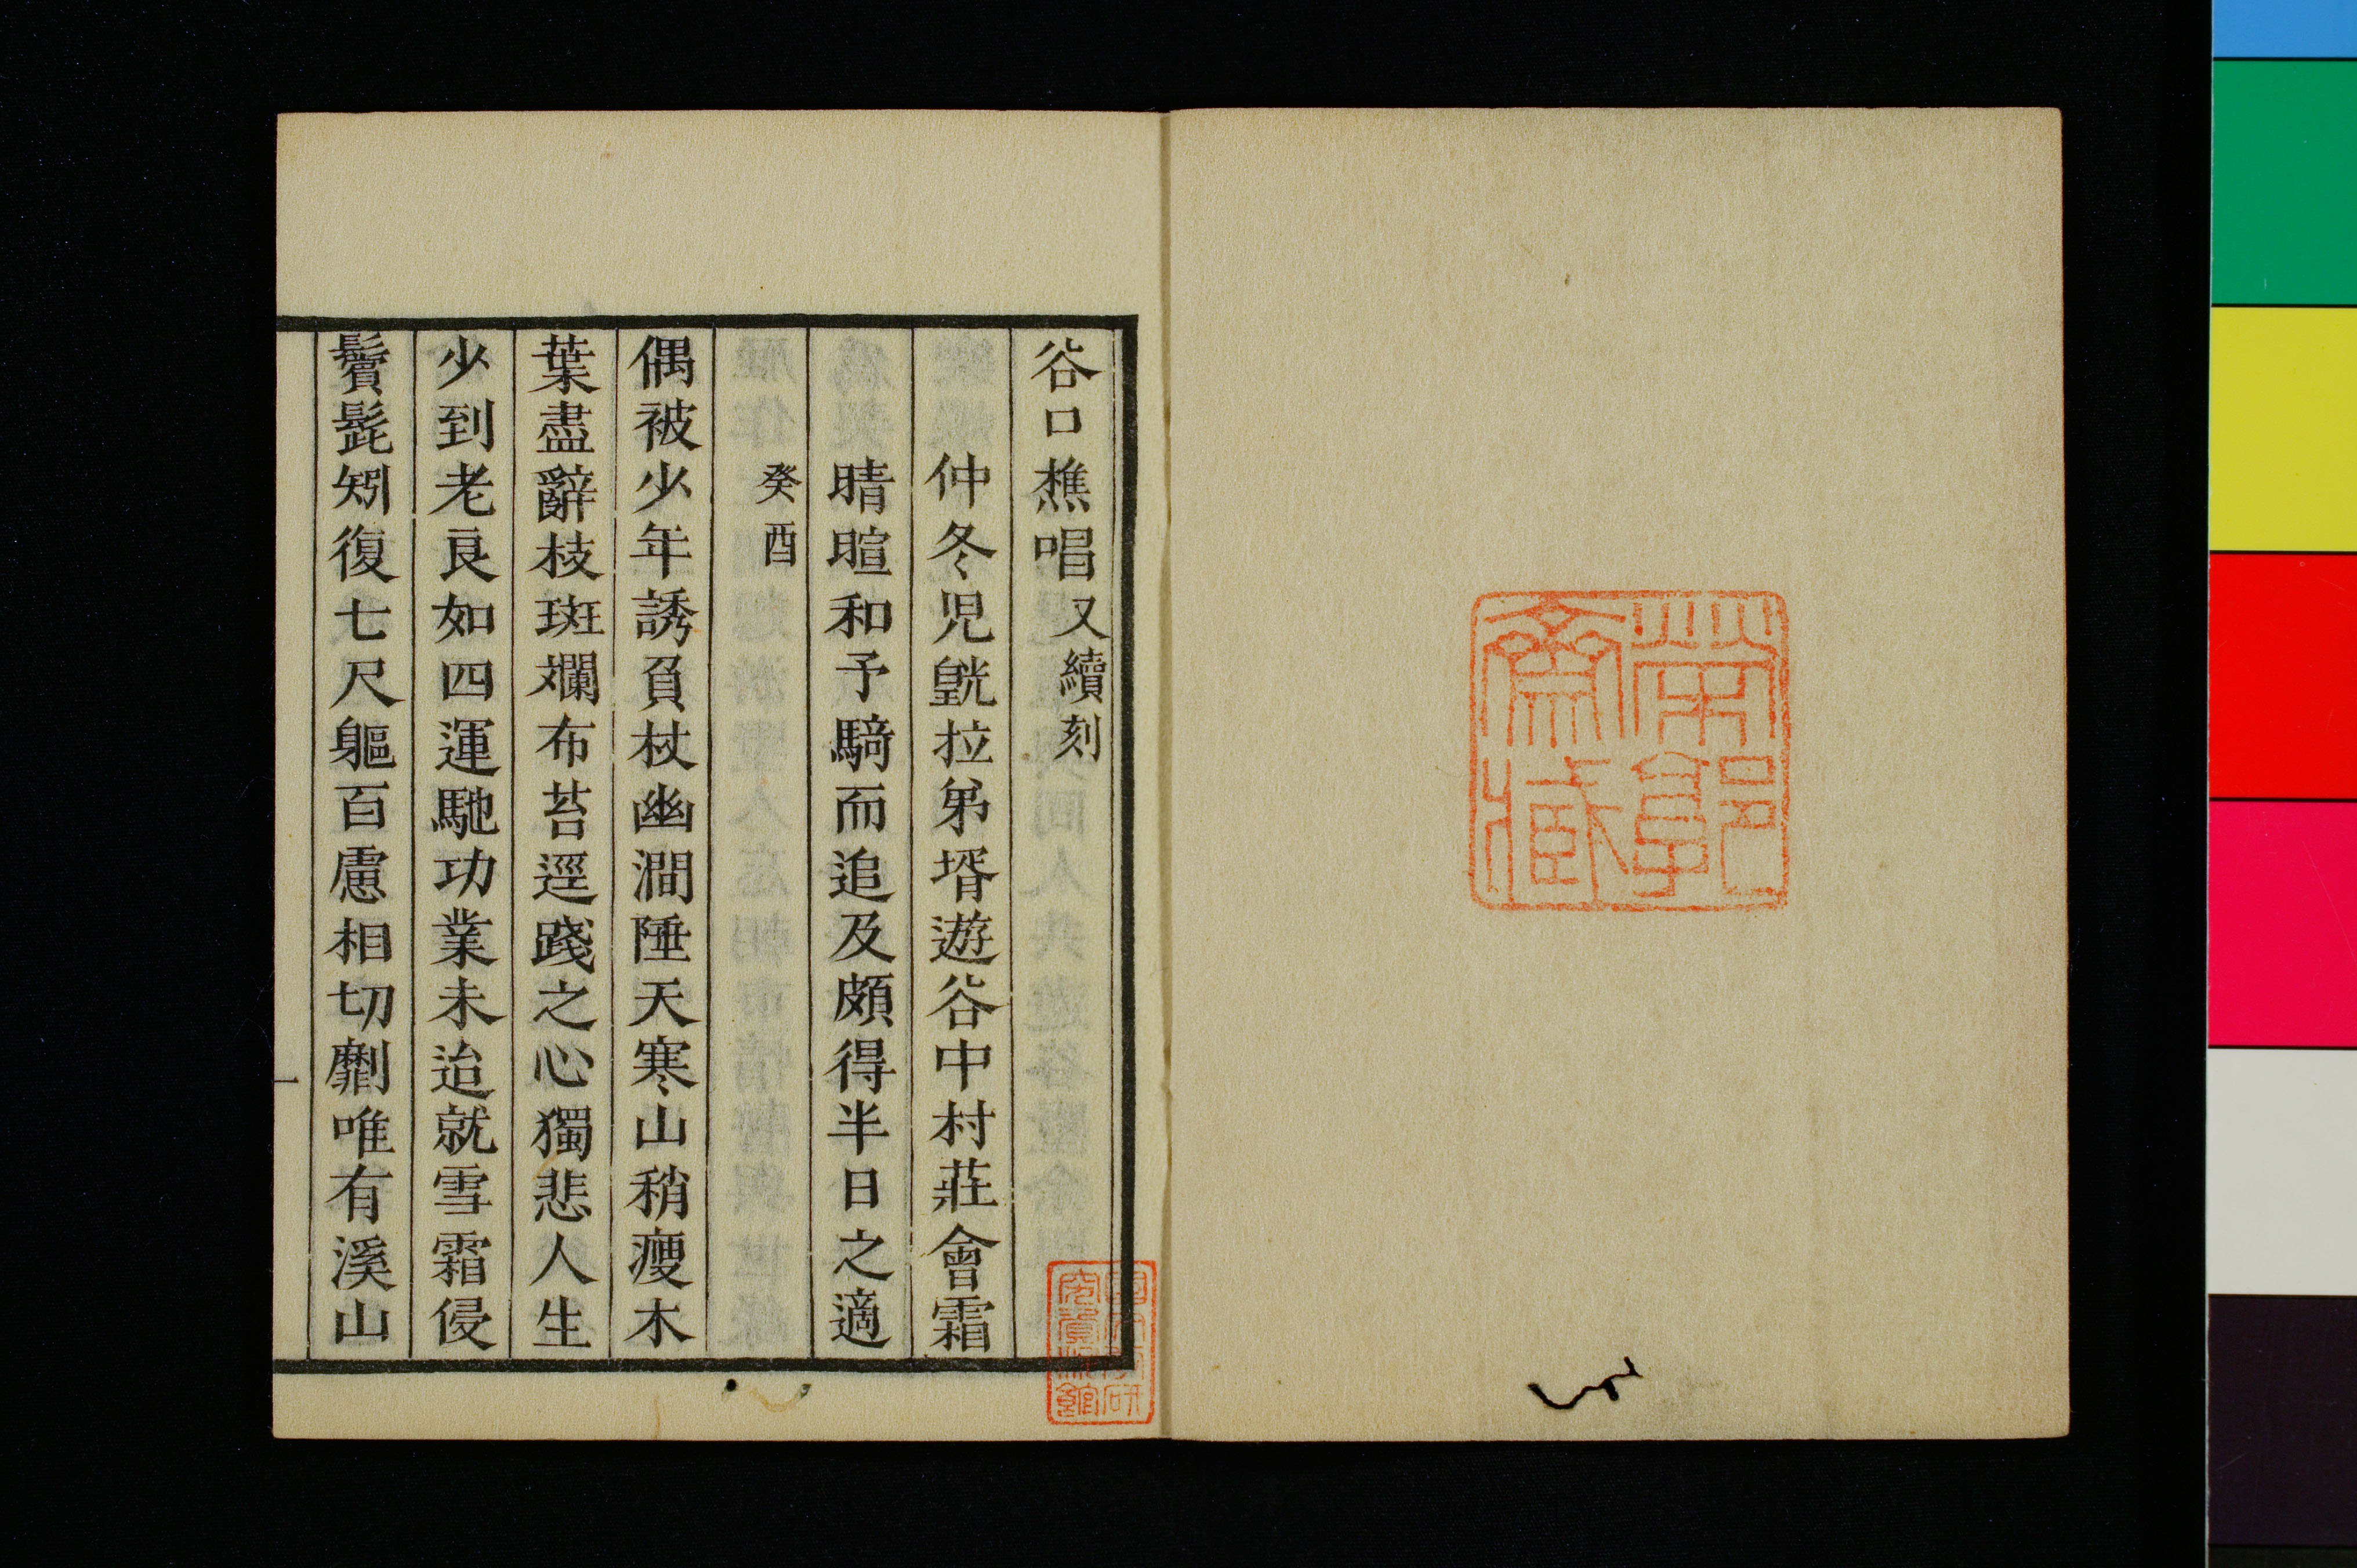 谷口樵唱又續刻
仲冬児皝拉弟壻遊谷中村莊會霜
晴暄和予騎而追及頗得半日之適
癸酉
偶被少年誘負杖幽澗陲天寒山稍瘦木
葉盡辭枝斑斕布苔逕踐之心獨悲人生
少到老良如四運馳功業未迨就雪霜侵
鬢髭矧復七尺軀百慮相切劘唯有溪山
一